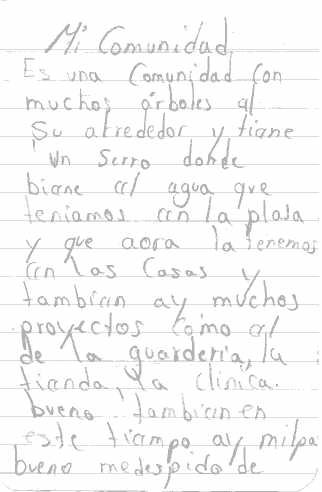 Mi Comunidad
Es una Comunidad Con
muchos árboles al
Su alrededor y tiane
Un Serro donde
biane al agua que
teniamos an la plasa
y que aora la tenemos
an Las Casas y
tambian ay muchos
proyectos Como al
de la guarderia, la
tianda, la clinica.
bueno tambian en
este tiampo ay milpa
bueno me despido de